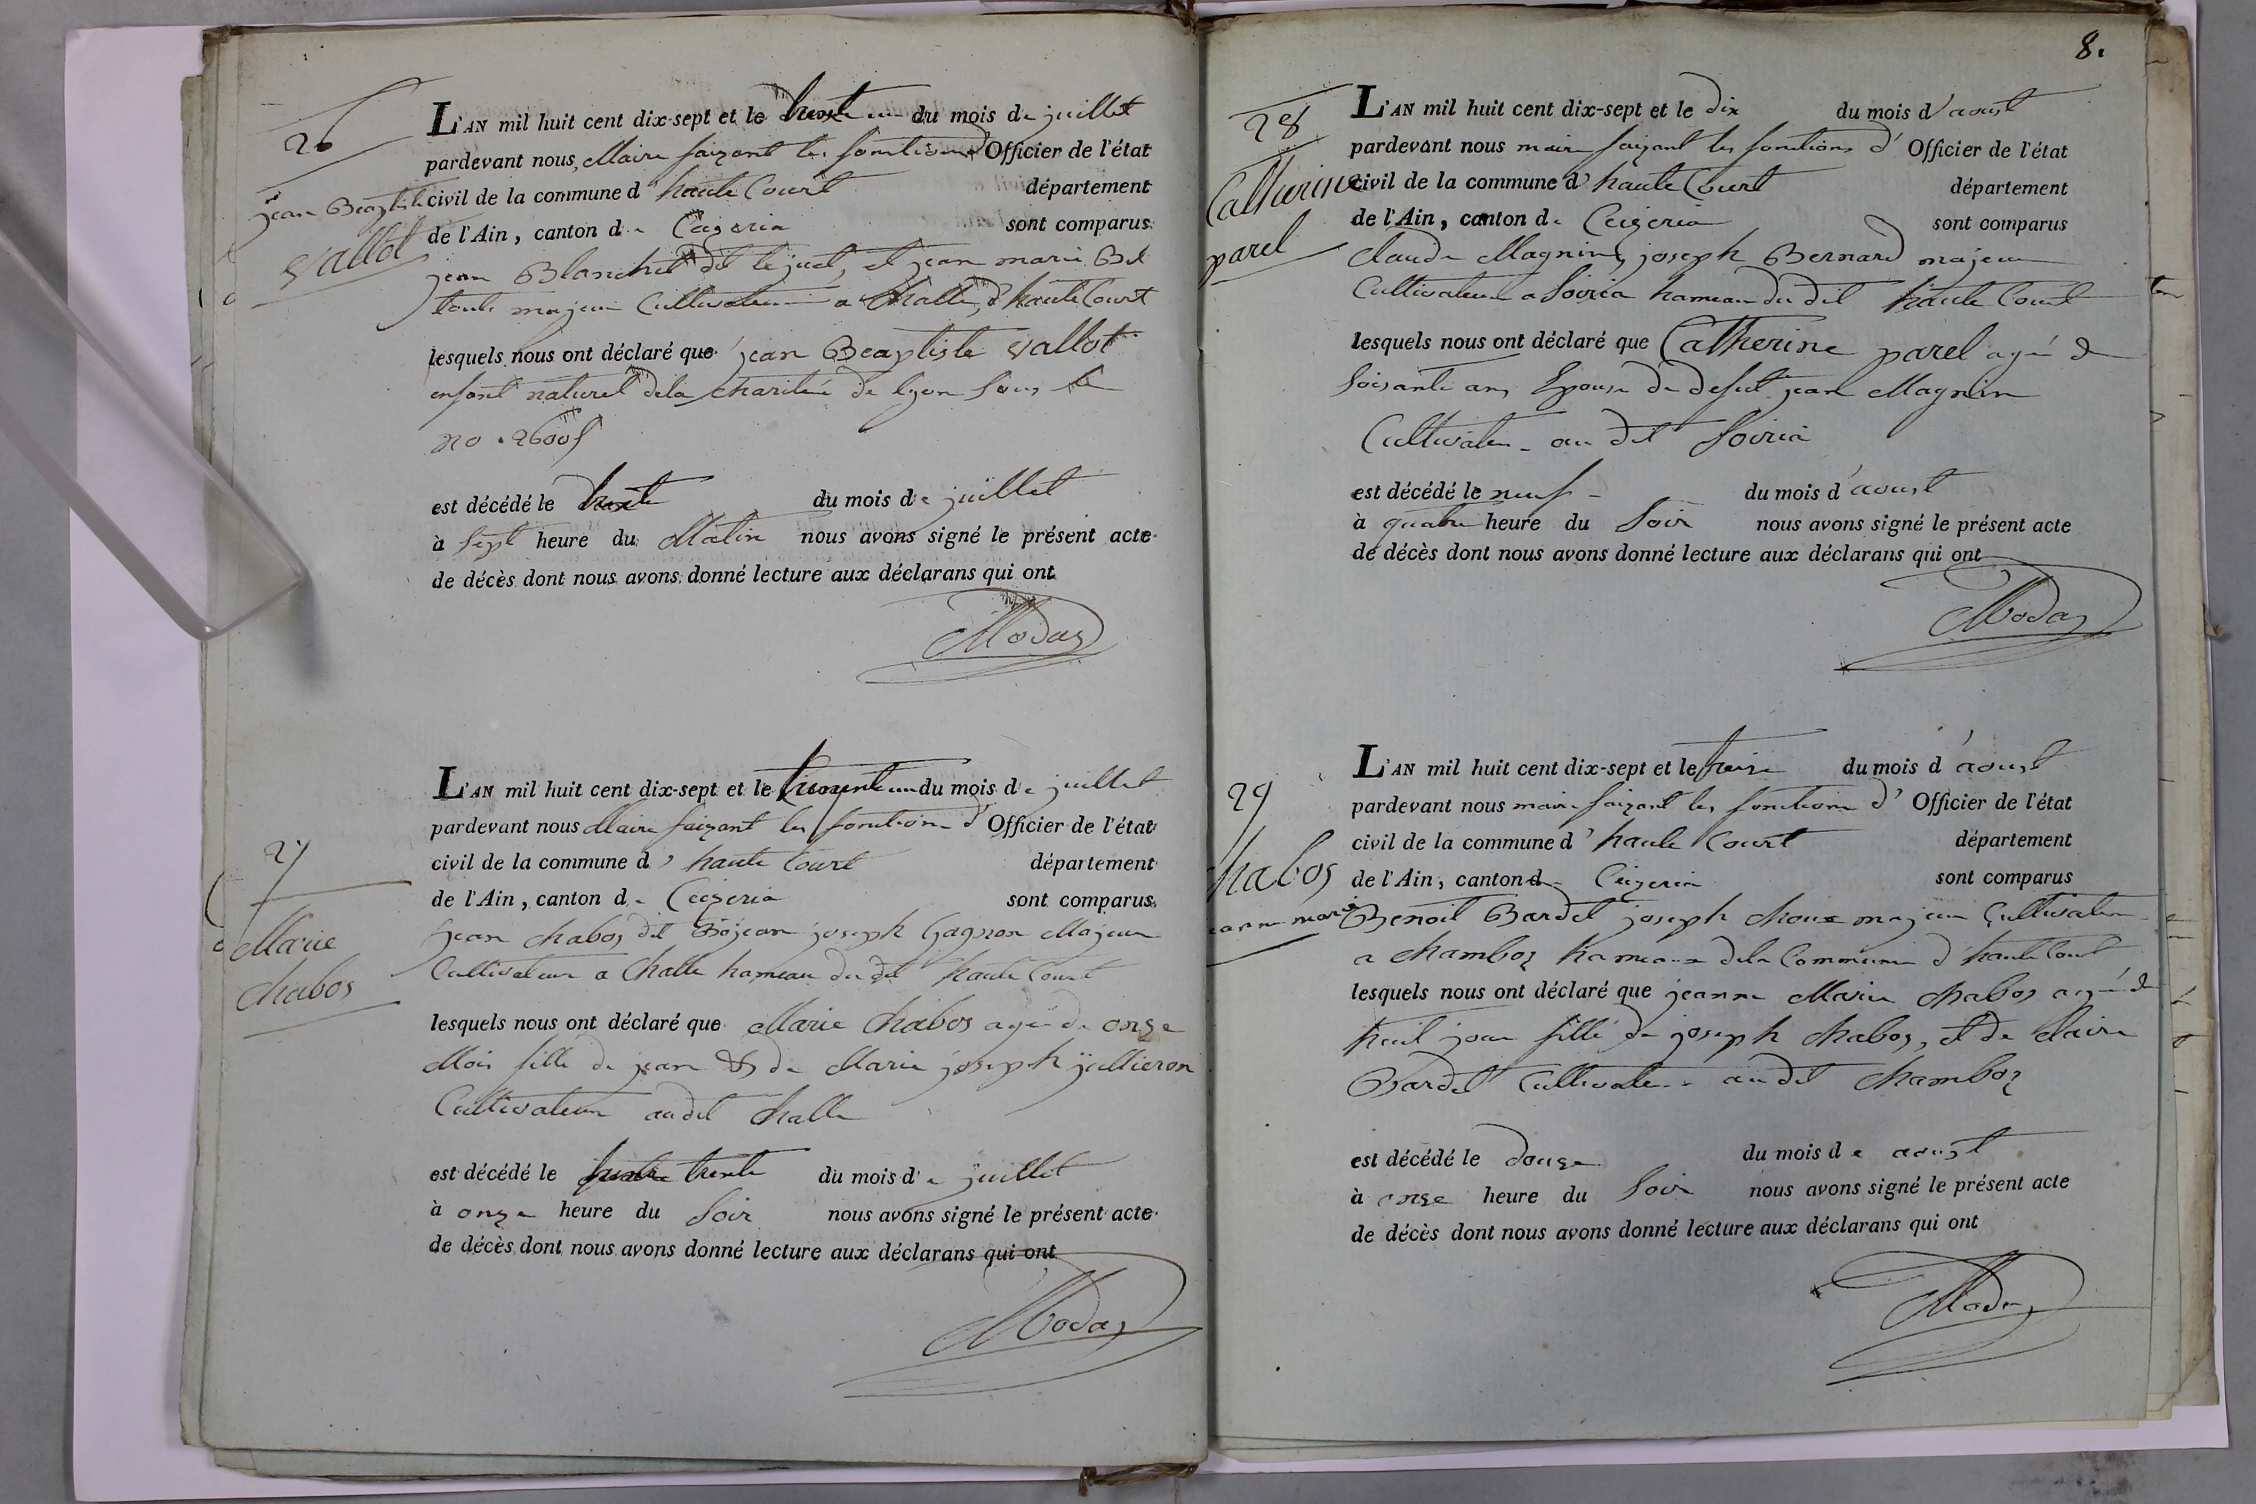 26
jean Beaptiste
vallot
L'AN mil huit cent dix-sept et le trente un du mois de juillet
pardevant nous, Maire faizant les fonctions d'Officier de l'état
civil de la commune d'haute Court département
de l'Ain, canton de Ceizeria sont comparus
jean Blanchet dit et jean marie
touts majeur Cultivateur a Challe d'haute Court
lesquels nous ont déclaré que jean Beaptiste vallot
enfant naturel dela charitée de lyon sous le
no. 26005
est décédé le trente du mois de juillet
à sept heure du Matin nous avons signé le présent acte
de décès dont nous avons donné lecture aux déclarans qui ont
Modas
27
Marie
chabos
L'AN mil huit cent dix-sept et le trente un du mois de juillet
pardevant nous Maire faizant les fonction d'Officier de l'état
civil de la commune d'haute Court département
de l'Ain, canton de Ceizeria sont comparus
jean chabos dit Bojean joseph Gagnon Majeur
Cultivateur a Challe hameau du dit haute Court
lesquels nous ont déclaré que Marie Chabos agée de onze
Mois fille de jean & de Marie joseph jullieron
Cultivateur audit challe
est décédé le trente du mois de juillet
à onze heure du soir nous avons signé le présent acte
de décès dont nous avons donné lecture aux déclarans qui ont
Modas
8.
28
Catherine
parel
L'AN mil huit cent dix-sept et le dix du mois d'aoust
pardevant nous maire faizant les fonctions d'Officier de l'état
civil de la commune d'haute Court département
de l'Ain, canton de Ceizeria sont comparus
Claude Magnin, joseph Bernard majeur
Cultivateur a Soiria hameau du dit haute Court
lesquels nous ont déclaré que Catherine parel agée de
soisante ans Epouse de defut jean Magnin
Cultivateur au dit Soiria
est décédé le neuf du mois d'aoust
à quatre heure du soir nous avons signé le présent acte
de décès dont nous avons donné lecture aux déclarans qui ont
Modas
29
Chabos
jeanne marie
L'AN mil huit cent dix-sept et le treize du mois d'aoust
pardevant nous maire faizant les fonctions d'Officier de l'état
civil de la commune d'haute Court département
de l'Ain, canton de Ceizeria sont comparus
Benoit Bardet joseph choux majeur Cultivateur
a chamboz hameaux dela Commune d'haute Court
lesquels nous ont déclaré que jeanne Marie chabos agée de
huit jour fille de joseph chabos, et de claire
Bardet Cultivateur audit chamboz
est décédé le douze du mois de aoust
à onze heure du soir nous avons signé le présent acte
de décès dont nous avons donné lecture aux déclarans qui ont
Modas